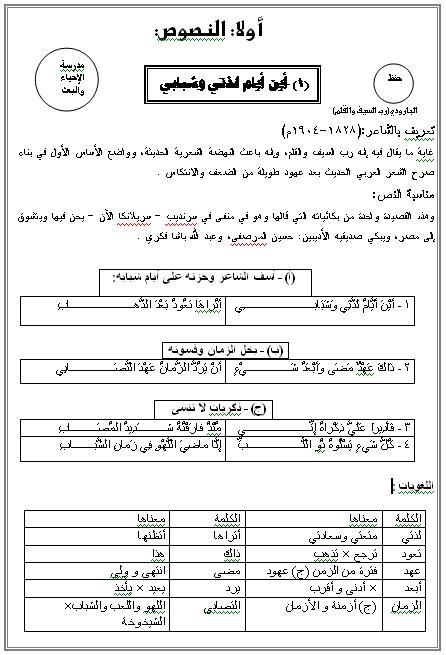 أولا: النصوص:
مدرسة الإحياء والبعث
(١) - أين أيام لذتي وشبابي
حفظ
البارودي(رب السيف والقلم)
تعريف بالشاعر:(١٨٣٨-١٩٠٤م)
غاية ما يقال فيه إنه رب السيف والقلم، وإنه باعث النهضة الشعرية الحديثة، وواضع الأساس الأول في بناء
صرح الشعر العربي الحديث بعد عهود طويلة من الضعف والانتكاس .
مناسبة النص:
وهذه القصيدة واحدة من بكائياته التي قالها وهو في منفى في سرنديب - سريلانكا الآن - يحن فيها ويتشوق
إلى مصر، ويبكي صديقيه الأديبين: حسين المرصفي، وعبد الله باشا فكري .
(أ) - أسف الشاعر وحزنه على أيام شبابه:
١ - أَيْنَ أَيَّامُ لَذَّتِي وَشَبَابِي أَتُرَاهَا تَعُودُ بَعْدَ الذَّهَابِ
(ب) - بخل الزمان وقسوته
٢ - ذَاكَ عَهْدٌ مَضَى وَأَبْعَدُ شَيْءٍ أَنْ يَرُدَّ الزَّمَانُ عَهْدَ التَّصَابِي
(ج) - ذكريات لا تنسى
٣ - فَأَدِيرَا عَلَيَّ ذِكْرَاهُ إِنِّي مُنْذُ فَارَقْتُهُ شَدِيدُ الْمُصَابِ
٤ - كُلُّ شَيءٍ يَسْلُوهُ ذُو اللُّبِّ إِلَّا مَاضِيَ اللَّهْوِ فِي زَمَانِ الشَّبَابِ
اللغويات :
الكلمة معناها الكلمة معناها
لذتي متعتي وسعادتي أتراها أتظنها
تعود ترجع × تذهب ذاك هذا
عهد فترة من الزمن (ج) عهود مضى انتهى و ولى
أبعد × أدنى و أقرب يرد يعيد × يأخذ
الزمان (ج) أزمنة و الأزمان التصابي اللهو واللعب والشباب×
الشيخوخة